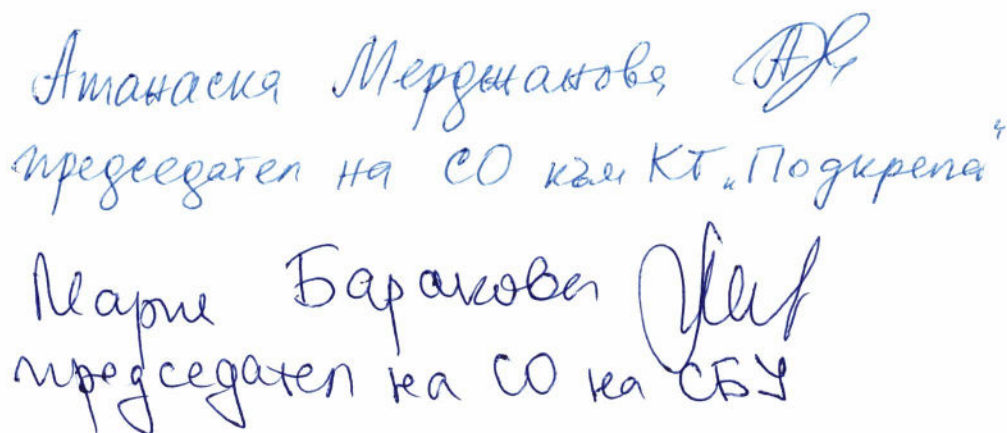 Атанаска Мерджанова
председател на СО към КТ „Подкрепа“
Мария Баракова
председател на СО на СБУ